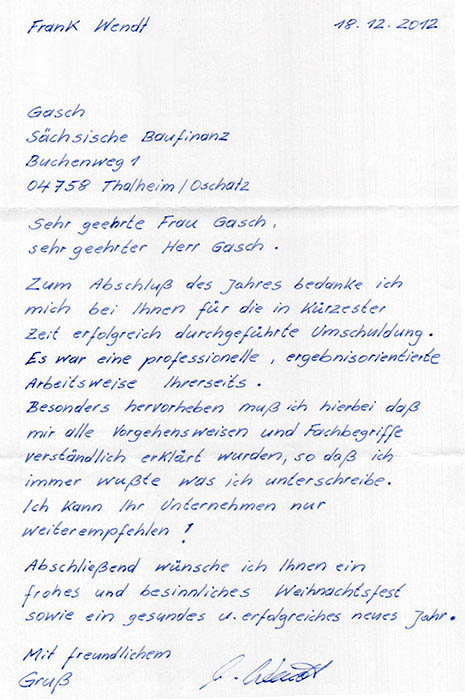 Frank Wendt 18.12.2012
Gasch
Sächsische Baufinanz
Buchenweg 1
04758 Thalheim/Oschatz
Sehr geehrte Frau Gasch,
sehr geehrter Herr Gasch.
Zum Abschluß des Jahres bedanke ich
mich bei Ihnen für die in Kürzester
Zeit erfolgreich durchgeführte Umschuldung.
Es war eine professionelle, ergebnisorientierte
Arbeitsweise Ihrerseits.
Besonders hervorheben muß ich hierbei daß
mir alle Vorgehensweisen und Fachbegriffe
verständlich erklärt wurden, so daß ich
immer wußte was ich unterschreibe.
Ich kann Ihr Unternehmen nur
weiterempfehlen!
Abschließend wünsche ich Ihnen ein
frohes und besinnliches Weihnachtsfest
sowie ein gesundes u. erfolgreiches neues Jahr.
Mit freundlichem
Gruß Wendt